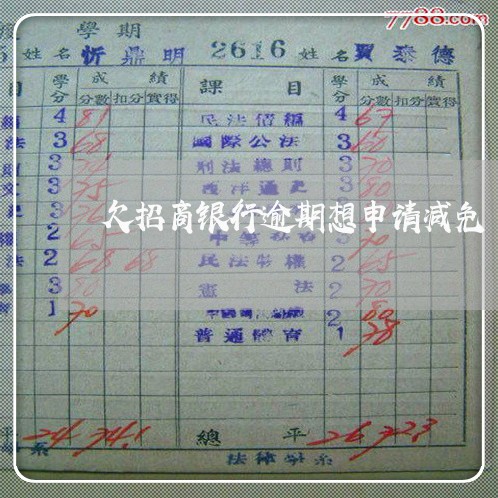 7788.com
學期
姓名 忻鼎明 2616 姓名 賈泰德
目 學分 成績 課目 學分 成績
分數 扣分 實得 分數 扣分 實得
4 81 民法債編 4 67
法 3 68 國際公法 3 60
3 刑法總則 3 70
3 75 西洋通史 3 80
欠招商银行逾期想申请减免
3
2 65 3 70
法 2 68 68 民法物權 2 65
3 80 憲法 2 70
1 70 2 80
普通體育 1 78
平 24 74.1 總平 26 72.3
系 法律學系